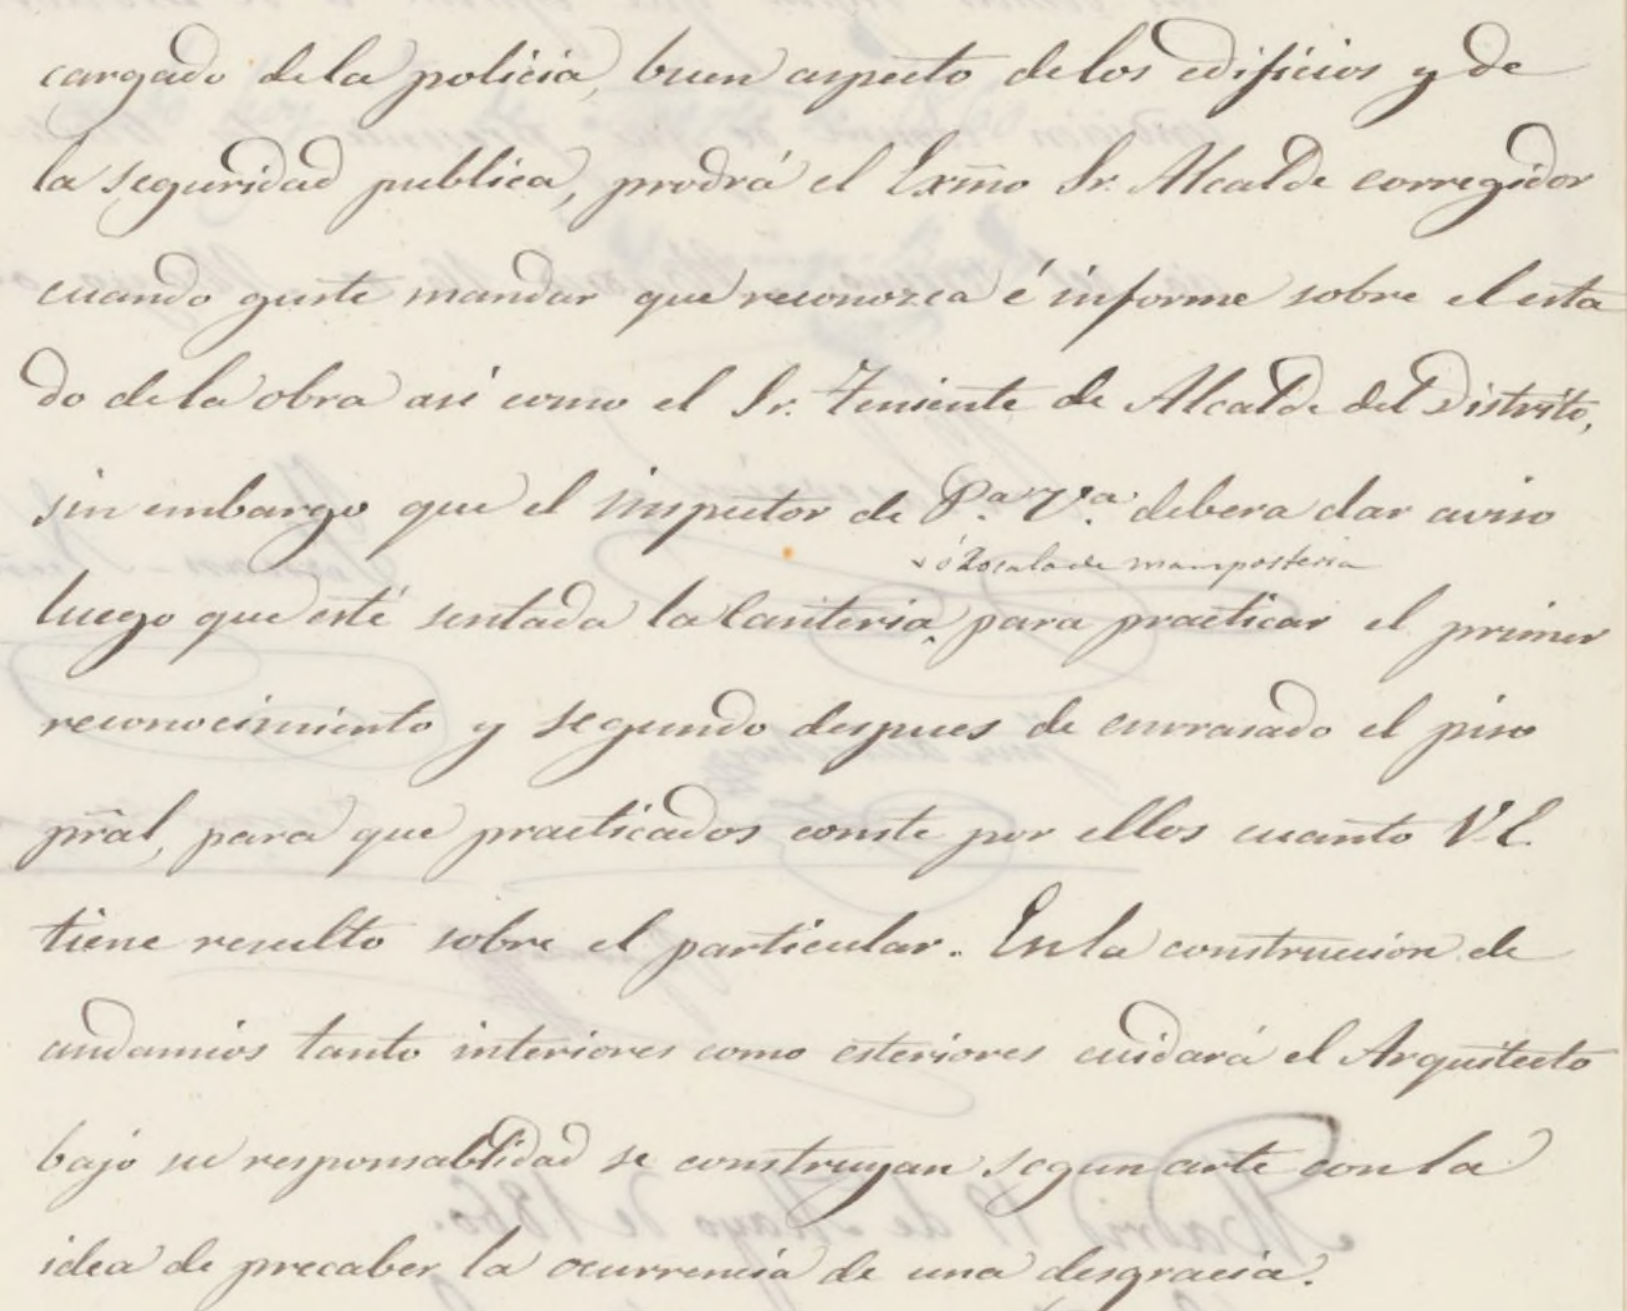 cargado de la policia, buen aspecto de los edificios y de
la seguridad publica, prodrá el Exm̃o Sr. Alcalde corregidor
cuando guste mandar que reconozca é informe sobre el esta
do de la obra asi como el Sr. Teniente de Alcalde del Distrito,
sin embargo que el inspector de P.ª V.ª debera dar aviso
ó Zocalo de mamposteria
luego que esté sentada la Canteria para practicar el primer
reconocimiento y segundo despues de enrrasado el piso
pr̃al, para que practicados conste por ellos cuanto V.E.
tiene resuelto sobre el particular. En la construccion de
andamios tanto interiores como esteriores cuidará el Arquitecto
bajo su responsablidad se construyan segun arte con la
idea de precaber la ocurrencia de una desgracia.